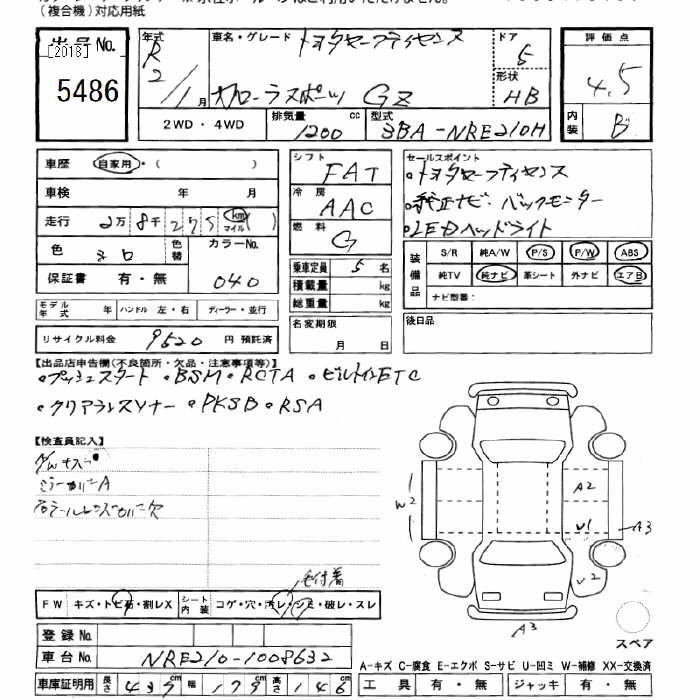 (複合機)対応用紙
出品No.
[2018]
5486
年式 R2/1月
車名・グレード トヨタセーフティセンス
カローラスポーツ GZ
ドア 5
形状 HB
評価点 4.5
内装 B
2WD・4WD
排気量 1200 cc
型式 3BA-NRE210H
車歴 自家用・( )
車検 年 月
走行 2万8千275 km マイル ( )
色 シロ 色替
カラーNo. 040
保証書 有・無
モデル年式 年 ハンドル 左・右 ディーラー・並行
リサイクル料金 9520 円 預託済
シフト FAT
冷房 AAC
燃料 G
乗車定員 5 名
積載量 kg
総重量 kg
名変期限 月 日
セールスポイント
・トヨタセーフティセンス
・純正ナビ・バックモニター
・LEDヘッドライト
装備品
S/R 純A/W P/S P/W ABS
純TV 純ナビ 革シート 外ナビ エアB
ナビ型番:
後日品
【出品店申告欄(不良箇所・欠品・注意事項等)】
・プッシュスタート ・BSM・RCTA ・ビルトインETC
・クリアランスソナー ・PKSB・RSA
【検査員記入】
ミラーカバーA
A2
W2
W1
A3
W2
A3
スペア
FW キズ・トビ石・割レX
シート内装 コゲ・穴・汚レ・シミ・破レ・スレ
毛付着
登録No.
車台No. NRE210-1008632
車庫証明用 長さ 435 cm 幅 179 cm 高さ 146 cm
A-キズ C-腐食 E-エクボ S-サビ U-凹ミ W-補修 XX-交換済
工具 有・無 ジャッキ 有・無